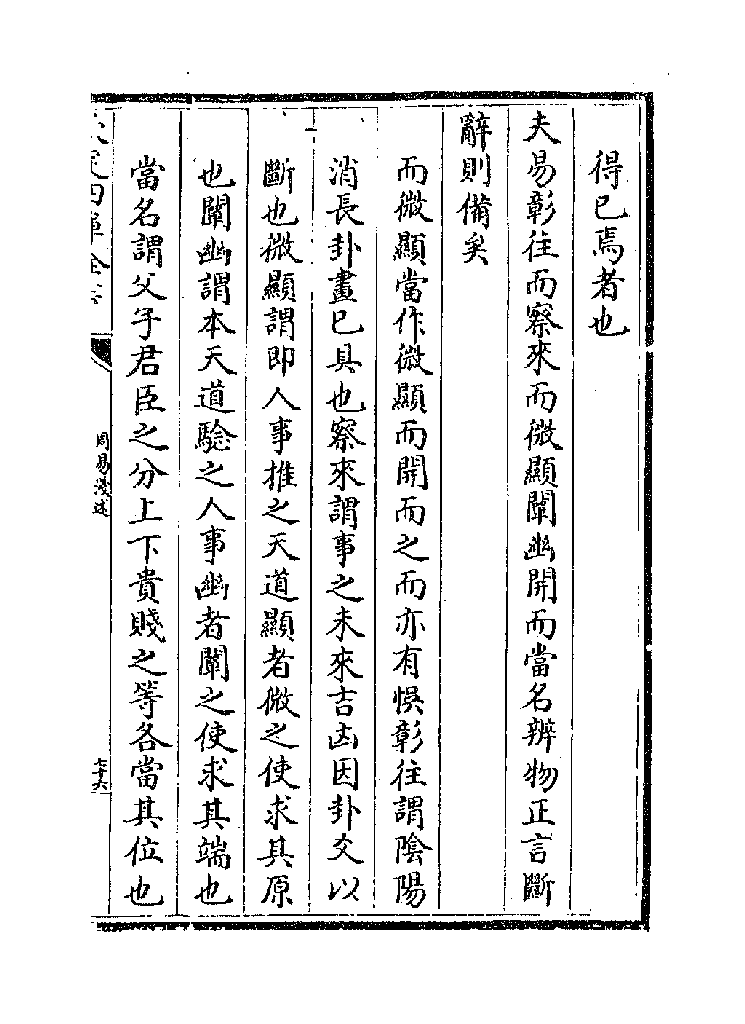 得已焉者也
夫易彰往而察來而微顯闡幽開而當名辨物正言斷
辭則備矣
而微顯當作微顯而開而之而亦有悞彰往謂陰陽
消長卦畫已具也察來謂事之未來吉凶因卦爻以
斷也微顯謂即人事推之天道顯者微之使求其原
也闡幽謂本天道驗之人事幽者闡之使求其端也
當名謂父子君臣之分上下貴賤之等各當其位也
欽定四庫全書
周易淺述
七十六